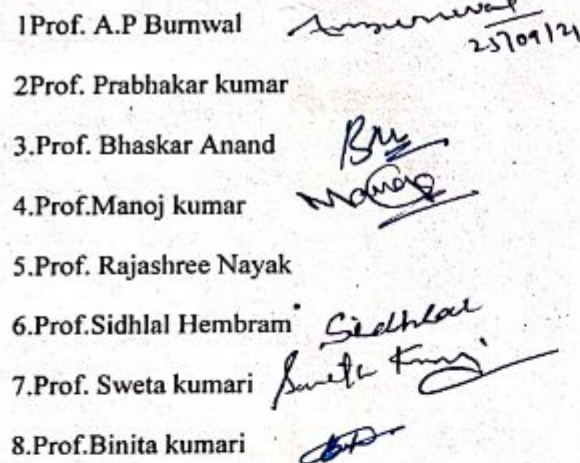 1Prof. A.P Burnwal
25/09/21
2Prof. Prabhakar kumar
3.Prof. Bhaskar Anand
4.Prof.Manoj kumar Manoj
5.Prof. Rajashree Nayak
6.Prof.Sidhlal Hembram Sidhlal
7.Prof. Sweta kumari Sweta Kumari
8.Prof.Binita kumari